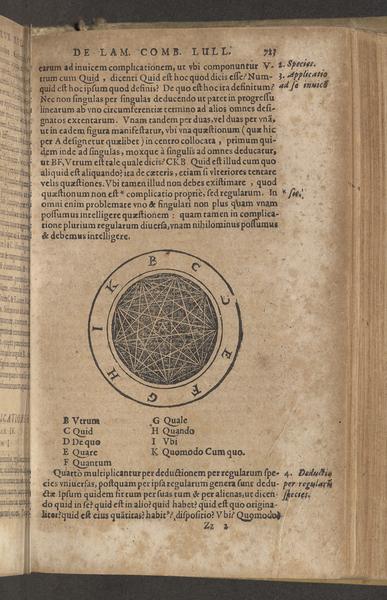 DE LAM. COMB. LULL. 723
earum ad inuicem complicationem, ut vbi componuntur V-
trum cum Quid, dicenti Quid est hoc quod dicis esse? Num-
quid est hoc ipsum quod definis? De quo est hoc ita definitum?
Nec non singulas per singulas deducendo ut patet in progressu
linearum ab vno circumferentiæ termino ad alios omnes desi-
gnatos extentarum. Vnam tandem per duas, vel duas per vnā,
ut in eadem figura manifestatur, vbi vna quæstionum (quæ hic
per A designetur quælibet) in centro collocata, primum qui-
dem inde ad singulas, moxque à singulis ad omnes deducatur,
ut BF, Vtrum est tale quale dicis? CKB Quid est illud cum quo
aliquid est aliquando? ita de cæteris, etiam si vlteriores tentare
velis quæstiones. Vbi tamen illud non debes existimare, quod
quæstionum non est * complicatio propriè, sed regularum. In
omni enim problemate vno & singulari non plus quam vnam
possumus intelligere quæstionem: quam tamen in complica-
tione plurium regularum diuersa, vnam nihilominus possumus
& debemus intelligere.
2. Species.
3. Applicatio
ad se inuicē
B C D E F G H I K
B Vtrum
C Quid
D De quo
E Quare
F Quantum
G Quale
H Quando
I Vbi
K Quomodo Cum quo.
Quartò multiplicantur per deductionem per regularum spe-
cies vniuersas, postquam per ipsa regularum genera sunt dedu-
ctæ Ipsum quidem fit tum per suas tum & per alienas, ut dicen-
do quid in se? quid est in alio? quid habet? quid est quo origina-
liter? quid est eius quātitas? habit', dispositio? Vbi? Quomodo
4. Deductio
per regularū
species.
Zz 2